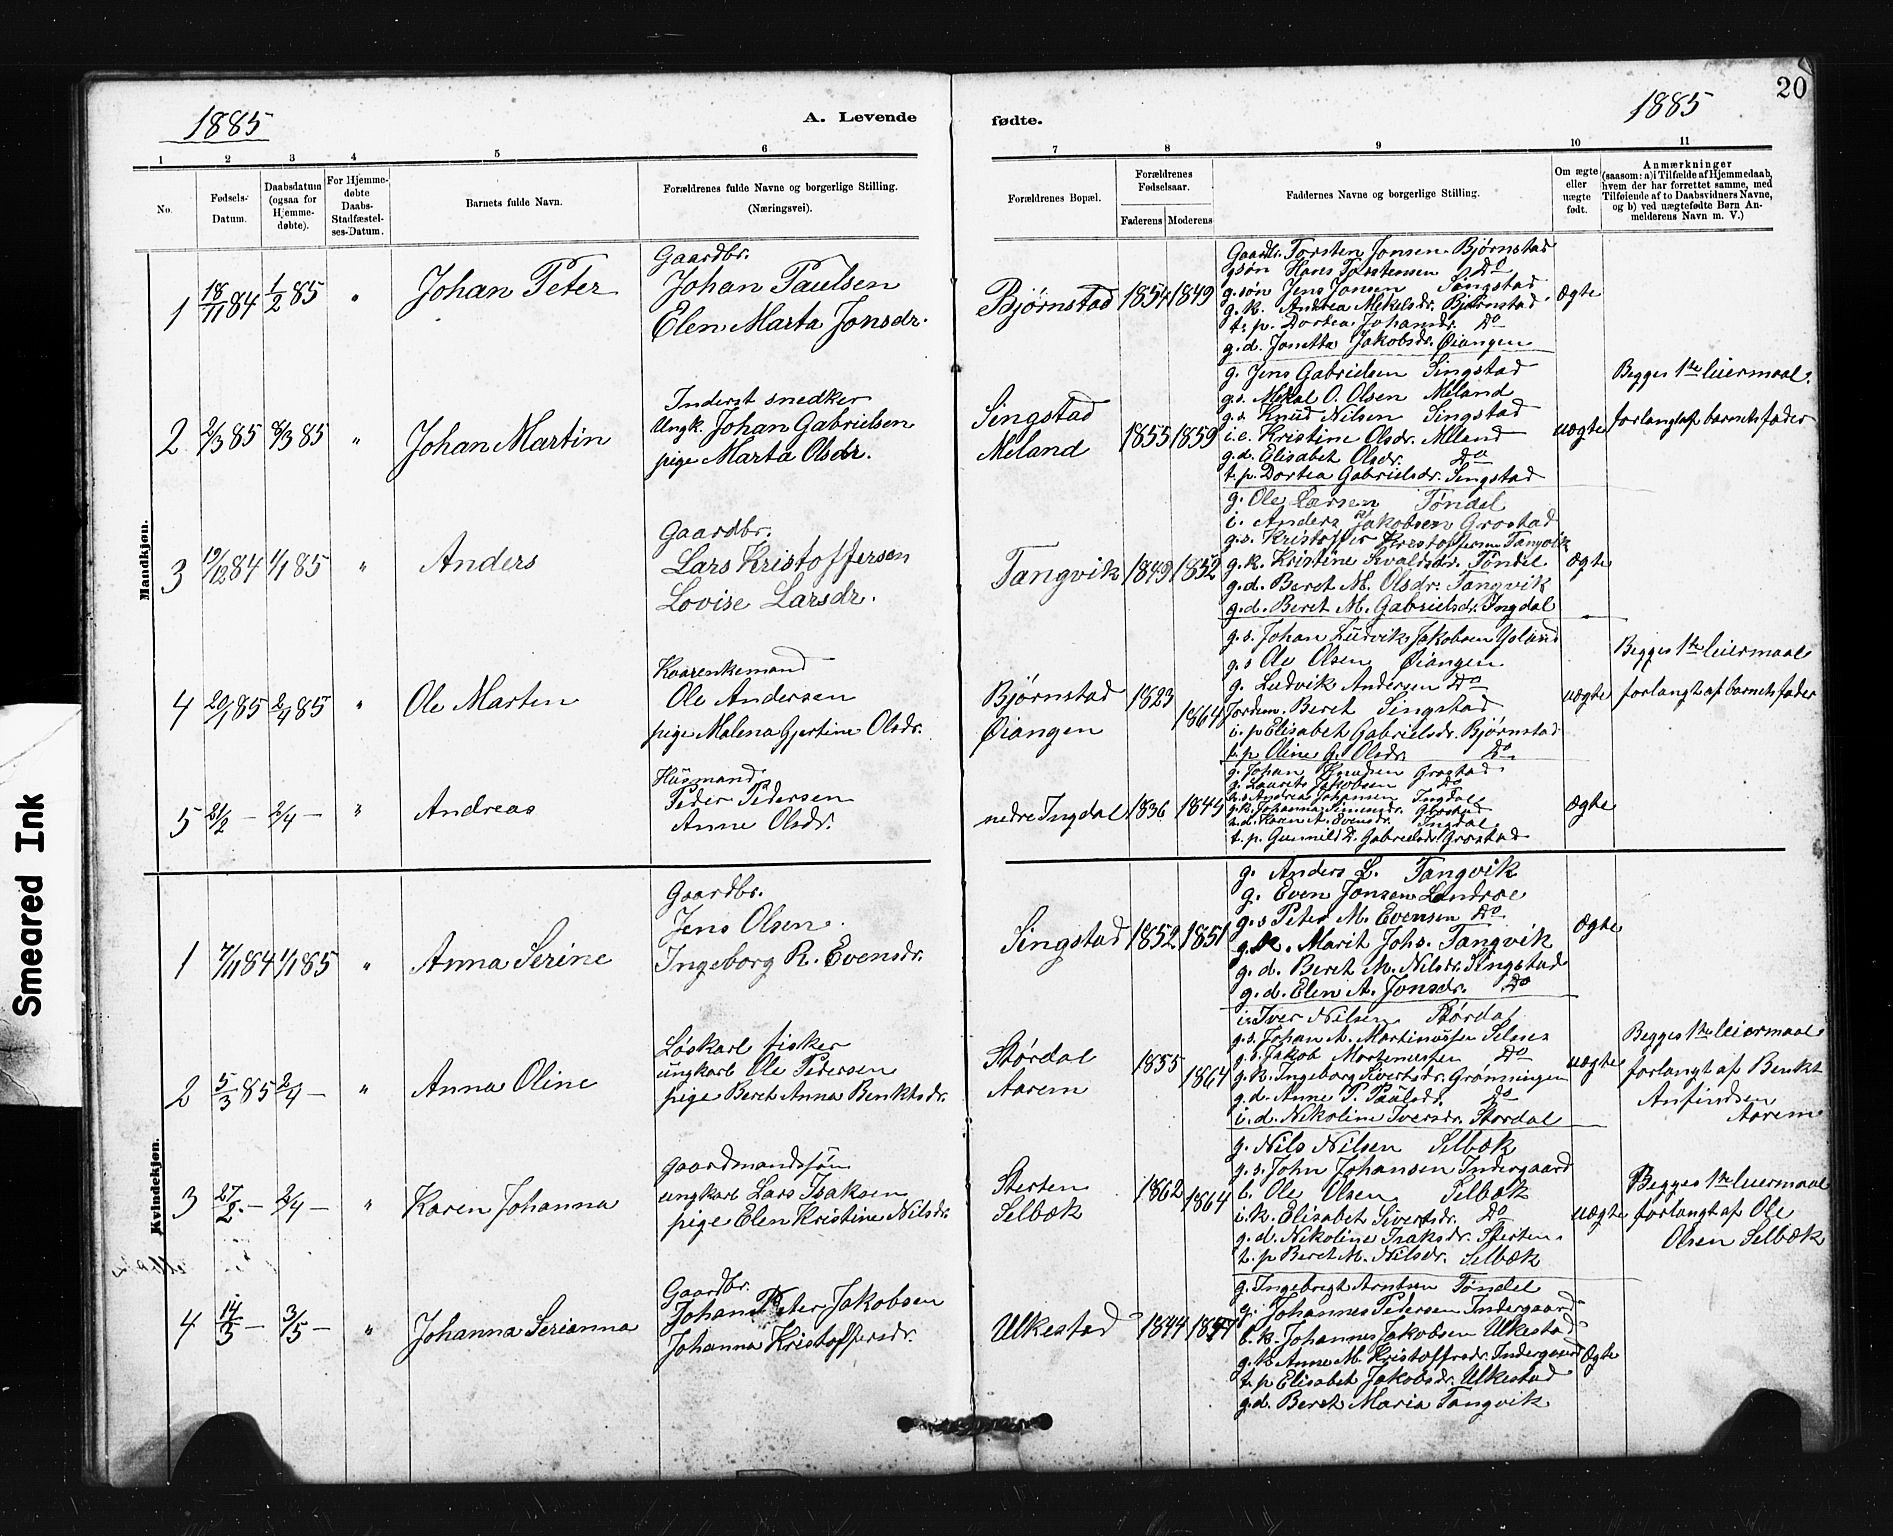 20
1885
A. Levende
fødte.
1885
1 2 3 4 5 6 7 8 9 10 11
No.
Fødsels-
Datum.
Daabsdatum
(ogsaa for
Hjemme-
døbte).
For Hjemme-
døbte
Daabs-
Stadfæstel-
ses-Datum.
Barnets fulde Navn.
Forældrenes fulde Navne og borgerlige Stilling.
(Næringsvei).
Forældrenes Bopæl.
Forældrenes
Fødselsaar.
Faderens Moderens
Faddernes Navne og borgerlige Stilling.
Om ægte
eller
uægte
født.
Anmærkninger
(saasom: a) i Tilfælde af Hjemmedaab,
hvem der har forrettet samme, med
Tilføiende af to Daabsvidners Navne,
og b) ved uægtefødte Børn An-
melderens Navn m. V.)
Mandkjøn.
1 18/11 84 1/2 85 " Johan Peter
Gaardbr.
Johan Paulsen
Elen Marta Jonsdr.
Bjørnstad 1854 1849
Gaardb. Torsten Jonsen Bjørnstad
gsøn Hans Torstensen Do
g.søn Jens Jonsen Singstad
g.k. Andrea Mekelsdr. Bjørnstad
t. p. Dortea Johansdr. Do
g.d. Jonetta Jakobsdr. Øiangen
ægte
2 2/3 85 8/3 85 " Johan Martin
Inderst snedker
Ungk. Johan Gabrielsen
pige Marta Olsdr.
Singstad
Meland
1855 1859
g. Jens Gabrielsen Singstad
g.s. Mekal O. Olsen Meland
g.s. Knud Nilsen Singstad
i.e. Kristine Olsdr. Meland
g.d. Elisabet Olsdr. Do
t.p. Dortea Gabrielsdr. Singstad
uægte
Begges 1ste leiermaal.
forlangt af barnets fader
3 19/12 84 1/1 85 " Anders
Gaardbr.
Lars Kristoffersen
Lovise Larsdr.
Tangvik 1849 1852
g. Ole Larsen Tøndel
i. Anders Jakobsen Grostad
g.s. Kristoffer Kristoffersen Tangvik
g.k. Kristine Sivaldsdr. Tøndel
g.d. Beret M. Olsdr. Tangvik
g.d. Beret M. Gabrielsdr. Ingdal
ægte
4 20/1 85 2/4 85 " Ole Marten
Kaarenkemand
Ole Andersen
pige Malena Gjertine Olsdr.
Bjørnstad
Øiangen
1823
1864
g.s. Johan Ludvik Jakobsen
g.s Ole Olsen Øiangen
g. Ludvik Andersen Do
Jordem. Beret Singstad
i. p Elisabet Gabrielsdr. Bjørnstad
t. p Oline G. Olsdr. Do
uægte
Begges 1ste leiermaal
forlangt af barnets fader
5 21/2 – 2/4 – " Andreas
Husmand
Peder Pedersen
Anne Olsdr.
nedre Ingdal 1836 1845
g. Johan Knudsen Grostad
g. Laurits Jakobsen Do
Andreas Johansen Ingdal
g.k. Johanna Simensdr. Grostad
Karen A. Evensdr. Ingdal
t. p. Gunnild D. Gabrielsdr. Grostad
ægte
Kvindekjøn.
1 7/11 84 1/1 85 " Anna Serine
Gaardbr.
Jens Olsen
Ingeborg R. Evensdr.
Singstad 1852 1851
g. Anders L. Tangvik
g. Even Jonsen Landroe
g.s Peter M. Evensen Do
g.k. Marit Johs. Tangvik
g.d. Beret M. Nilsdr. Singstad
g.d. Elen A. Jonsdr. Do
ægte
2 5/3 85 2/4 – " Anna Oline
Løskarl fisker
ungkarl Ole Pedersen
pige Beret Anna Benktsdr.
Størdal
Aarem
1855
1864
i. Iver Nilsen Størdal
g.s. Johan A. Martinussen Selnes
g.s. Jakob Mortenussen Do
g.k. Ingeborg Sivertsdr. Grønningen
g.d. Anne P. Paulsd. Do
i.d. Nikoline Iversdr. Stordal
uægte
Begges 1ste leiermaal
forlangt af Benkt
Anfindsen
Aarem
3 27/2 – 2/4 – " Karen Johanna
gaardmandssøn
ungkarl Lars Isaksen
pige Elen Kristine Nilsdr.
Sterten
Selbæk
1862
1864
g. Nils Nilsen Selbæk
g.s. John Johansen Indergaard
b. Ole Olsen Selbæk
i.k. Elisabet Sivertsdr. Do
g.d. Nikoline Isaksdr. Sterten
t. p Beret M. Nilsdr. Selbæk
uægte
Begges 1ste leiermaal
forlangt af Ole
Olsen Selbæk
4 14/3 – 3/5 – " Johanna Serianna
Gaardbr.
Johan Peter Jakobsen
Johanna Kristoffersdr.
Ulkestad 1844
g. Ingebrigt Arntsen Tøndel
g. Johannes Pedersen Indergaard
b.k. Johannes Jakobsen Ulkestad
g.k Anne M. Kristoffersdr. Indergaard
t. p Elisabet Jakobsdr. Ulkestad
g.d. Beret Maria Tangvik
Ægte
Smeared Ink